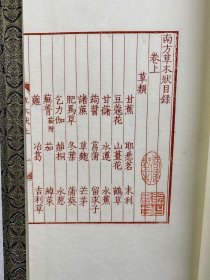 南方草木狀目錄
卷上
草類
甘蕉 耶悉茗 末利
豆蔻花 山薑花 鶴草
甘藷 水蓮 水蕉
蒟醬 菖蒲 留求子
諸蔗 草麴 芒茅
肥馬草 冬葉 蒲葵
乞力伽 赬桐 水葱
蕪菁 茄 綽菜
蕹 冶葛 吉利草